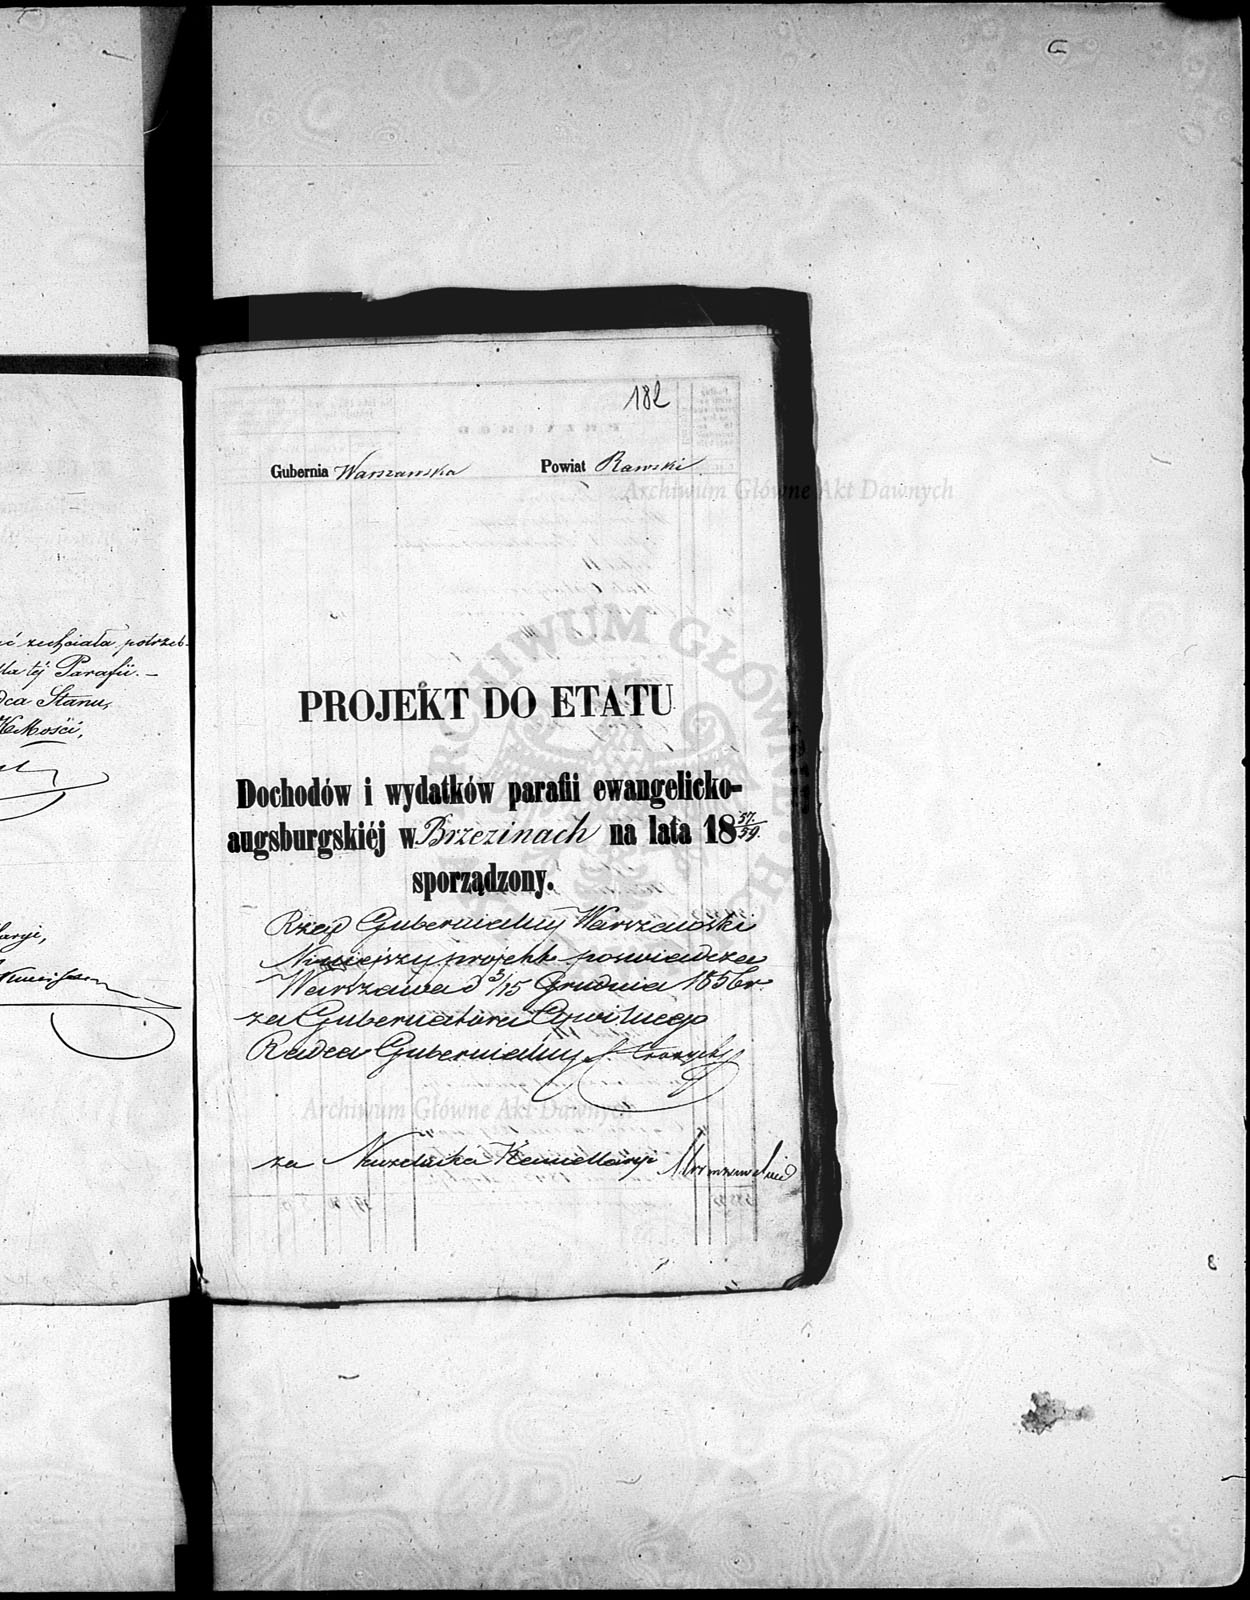 182
Gubernia Warszawska Powiat Rawski
PROJEKT DO ETATU
Dochodów i wydatków parafii ewangelicko-
augsburgskiéj w Brzezinach na lata 18 57/59.
sporządzony.
Rząd Gubernialny Warszawski
Niniejszy projekt poswiadcza
Warszawa d 3/15 Grudnia 1856 r.
za Gubernatora Cywilnego
Radca Gubernialny
za Naczelnika Kancellaryi
ć zechciała potrzeb-
dla téj Parafii.
dca Stanu,
Mości,
Archiwum Główne Akt Dawnych
ARCHIWUM GŁÓWNE AKT DAWNYCH
Archiwum Główne Akt Dawnych